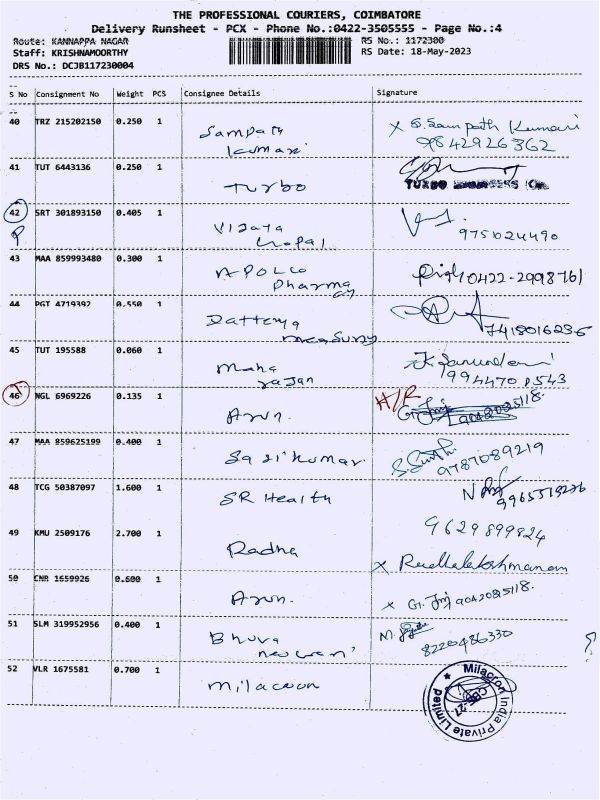 THE PROFESSIONAL COURIERS, COIMBATORE
Delivery Runsheet - PCX - Phone No.:0422-3505555 - Page No.:4
Route: KANNAPPA NAGAR
RS No.: 1172300
Staff: KRISHNAMOORTHY
RS Date: 18-May-2023
DRS No.: DCJB117230004
S No Consignment No Weight PCS Consignee Details Signature
40 TRZ 215202150 0.250 1 Sampath Kumari x S. Sampath Kumari
9842926362
41 TUT 6443136 0.250 1 Turbo
TURBO
42 SRT 301893150 0.405 1 Vijaya Gopal
P 9751024490
43 MAA 859993480 0.300 1 Apollo Pharmacy 0422-2998761
44 PGT 4719392 0.550 1 7418016236
45 TUT 195588 0.060 1 Maha rajan
9944701543
46 NGL 6969226 0.135 1 Arun. H/R
9042025118.
47 MAA 859625199 0.400 1 Sasikumar
9787089219
48 TCG 50387097 1.600 1 SR Health
49 KMU 2509176 2.700 1 Radha 9629899824
x Radhalakshmanan
50 CNR 1659926 0.600 1 Arun. x 9042025118.
51 SLM 319952956 0.400 1 Bhuvaneswari M.
8220486330
52 VLR 1675581 0.700 1 Milacron
Milacron India Private Limited
CBE-27